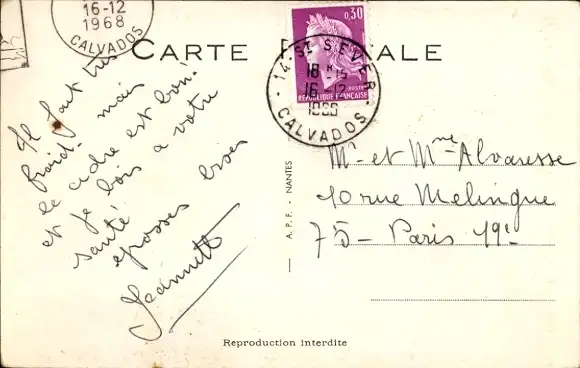 16-12
1968
CALVADOS
CARTE P TALE
0,30
POSTES
REPUBLIQUE FRANÇAISE
14 - St SEVER -
18 H 15
16 - 12
CALVADOS
Il fait très
froid - mais
le cidre est bon.
et je bois a votre
santé
grosses bises
Jeannette
A. P. F. - NANTES
Mr et Mme Alvaresse
10 rue Melingue
75 - Paris 19e
Reproduction interdite